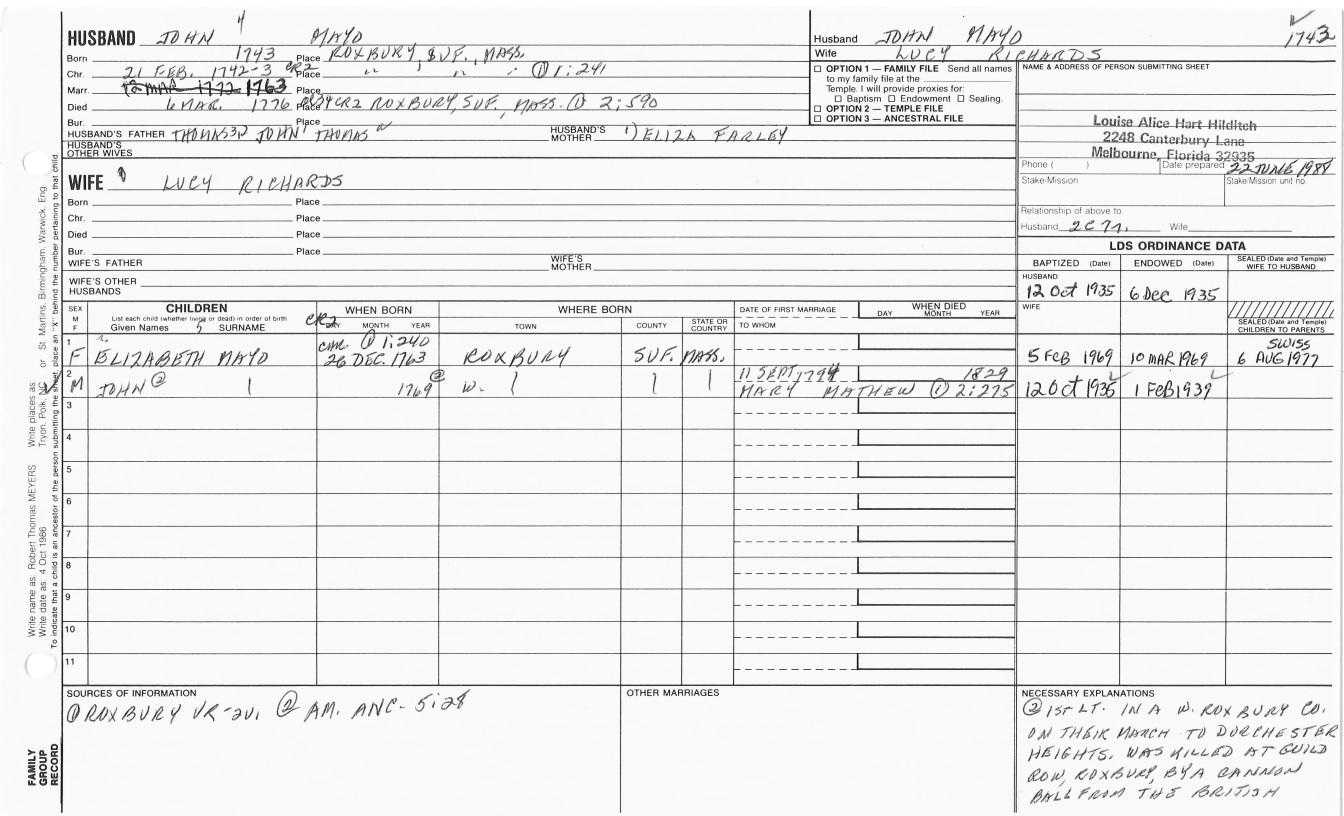 HUSBAND JOHN 4 MAYO
Born 1743 Place ROXBURY, SUF., MASS.
Chr. 21 FEB. 1742-3 CR2 Place " " " ① 1:241
Marr. 1763 Place
Died 6 MAR. 1776 Place CR2 ROXBURY, SUF., MASS. ① 2:590
Bur.
HUSBAND'S FATHER THOMAS 3 JOHN THOMAS
HUSBAND'S MOTHER 1) ELIZA FARLEY
HUSBAND'S OTHER WIVES
WIFE LUCY RICHARDS
Born Place
Chr. Place
Died Place
Bur. Place
WIFE'S FATHER
WIFE'S MOTHER
WIFE'S OTHER HUSBANDS
Husband JOHN MAYO 1743
Wife LUCY RICHARDS
☐ OPTION 1 — FAMILY FILE Send all names
to my family file at the
Temple. I will provide proxies for:
☐ Baptism ☐ Endowment ☐ Sealing.
☐ OPTION 2 — TEMPLE FILE
☐ OPTION 3 — ANCESTRAL FILE
NAME & ADDRESS OF PERSON SUBMITTING SHEET
Louise Alice Hart Hilditch
2248 Canterbury Lane
Melbourne, Florida 32935
Phone ( ) Date prepared 22 JUNE 1988
Stake-Mission Stake/Mission unit no.
Relationship of above to:
Husband 2C 7r. Wife
LDS ORDINANCE DATA
BAPTIZED (Date) ENDOWED (Date) SEALED (Date and Temple) WIFE TO HUSBAND
HUSBAND
12 Oct 1935 6 Dec 1935
WIFE
SEALED (Date and Temple) CHILDREN TO PARENTS
SEX M F
CHILDREN
List each child (whether living or dead) in order of birth
Given Names 5 SURNAME
WHEN BORN
CR2 DAY MONTH YEAR
WHERE BORN
TOWN COUNTY STATE OR COUNTRY
DATE OF FIRST MARRIAGE
TO WHOM
WHEN DIED
DAY MONTH YEAR
1 F ELIZABETH MAYO CHR. ① 1:240 26 DEC. 1763 ROXBURY SUF. MASS. 5 FEB 1969 10 MAR 1969 SWISS 6 AUG 1977
2 M JOHN ② 1769 ② W. 11 SEPT 1794 1829
MARY MATHEW ① 2:275 12 Oct 1935 1 FEB 1939
3
4
5
6
7
8
9
10
11
SOURCES OF INFORMATION
① ROXBURY VR-2v. ② AM. ANC- 5:28
OTHER MARRIAGES
NECESSARY EXPLANATIONS
② 1ST LT. IN A W. ROXBURY CO.
ON THEIR MARCH TO DORCHESTER
HEIGHTS. WAS KILLED AT GUILD
ROW, ROXBURY, BY A CANNON
BALL FROM THE BRITISH
Write name as: Robert Thomas MEYERS Write places as: Tryon, Polk, NC or St. Martins, Birmingham, Warwick, Eng.
Write date as: 4 Oct 1986
To indicate that a child is an ancestor of the person submitting the sheet, place an "X" behind the number pertaining to that child.
FAMILY
GROUP
RECORD